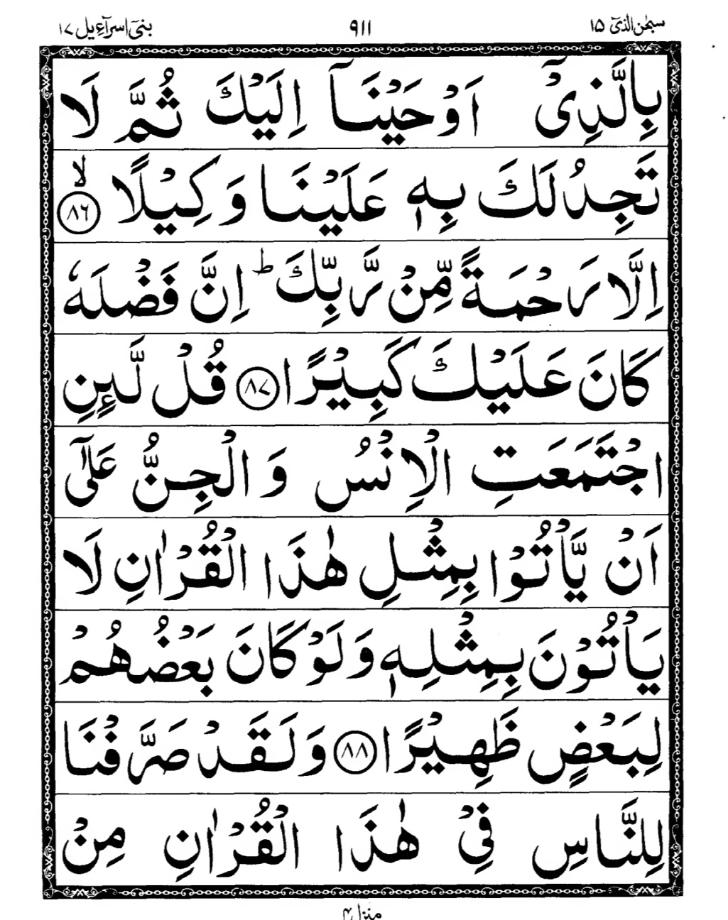 سبحٰن الذیٓ ۱۵ ۹۱۱ بنیٓ اسرآءیل ۱۷
بِالَّذِیْۤ اَوْحَیْنَاۤ اِلَیْكَ ثُمَّ لَا
تَجِدُ لَكَ بِهٖ عَلَیْنَا وَكِیْلًا ۙ﴿۸۶﴾
اِلَّا رَحْمَةً مِّنْ رَّبِّكَ ؕ اِنَّ فَضْلَهٗ
كَانَ عَلَیْكَ كَبِیْرًا ﴿۸۷﴾ قُلْ لَّىِٕنِ
اجْتَمَعَتِ الْاِنْسُ وَ الْجِنُّ عَلٰۤی
اَنْ یَّاْتُوْا بِمِثْلِ هٰذَا الْقُرْاٰنِ لَا
یَاْتُوْنَ بِمِثْلِهٖ وَلَوْ كَانَ بَعْضُهُمْ
لِبَعْضٍ ظَهِیْرًا ﴿۸۸﴾ وَلَقَدْ صَرَّفْنَا
لِلنَّاسِ فِیْ هٰذَا الْقُرْاٰنِ مِنْ
منزل ۴